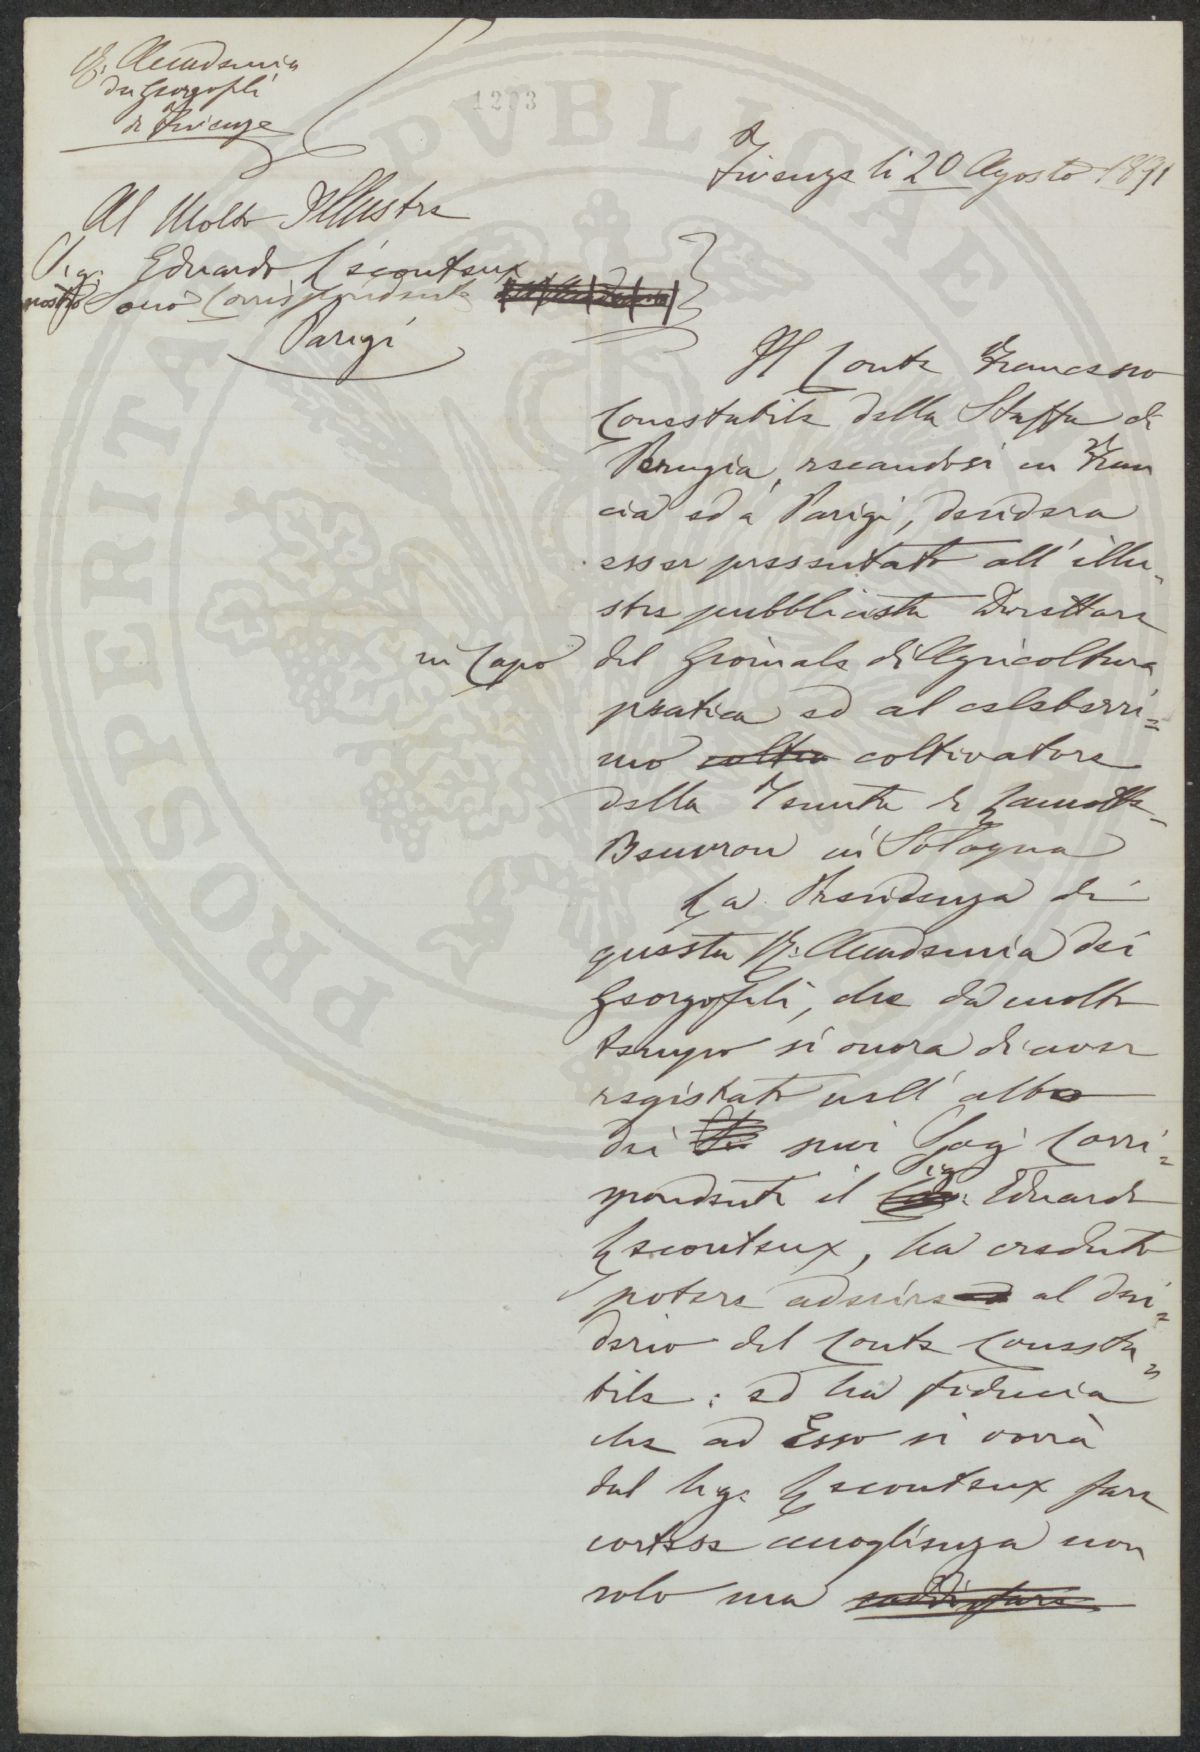 R. Accademia
dei Georgofili
di Firenze
1203
Firenze li 20 Agosto 1891
Al Molto Illustre
Sig. Eduardo Lecouteux
nostro Socio Corrispondente
Parigi
Il Conte Francesco
Conestabile della Staffa di
Perugia, recandosi in Fran
cia ed a Parigi, desidera
esser presentato all'illu-
stre pubblicista Direttore
in Capo
del Giornale di Agricoltura
pratica ed al celeberri=
mo coltiva coltivatore
della Tenuta di Lamotte-
Beuvron in Sologna
La Presidenza di
questa R. Accademia dei
Georgofili, che da molto
tempo si onora di aver
registrato nell'albo
dei suoi Socj Corri=
spondenti il Sig. Eduardo
Lecouteux, ha creduto
potere aderire al desi=
derio del Conte Conesta=
bile: ed ha fiducia
che ad Esso si vorrà
dal Sig. Lecouteux fare
cortese accoglienza non
solo ma soddisfare
PROSPERITATI PVBLICAE